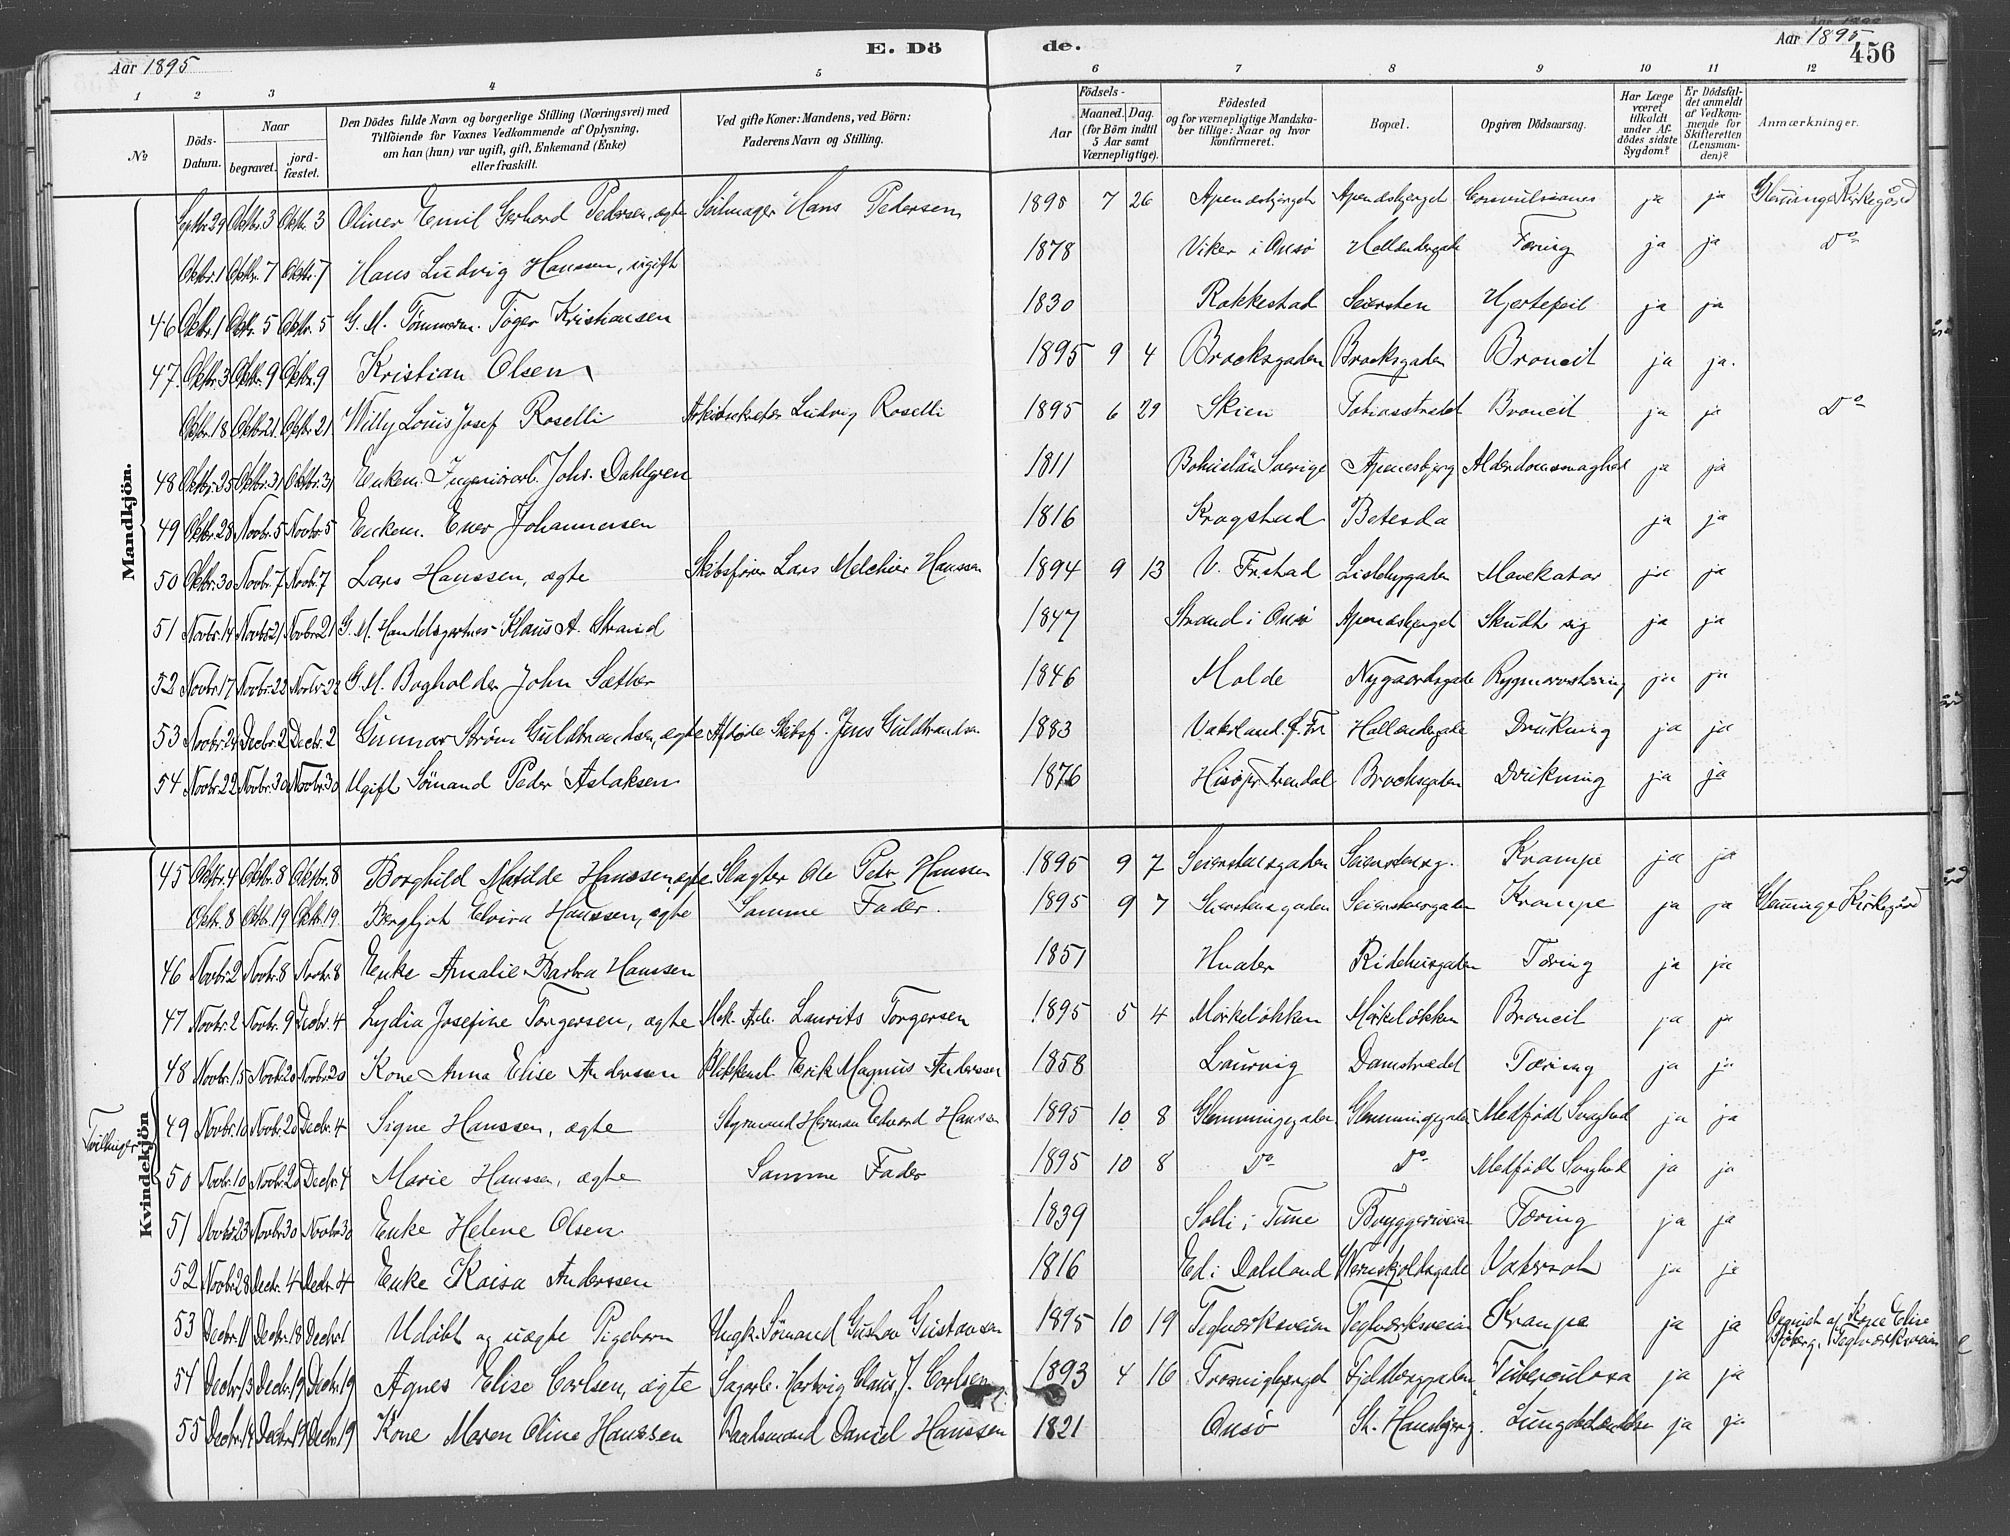 Aar 1895 E. Dö de. Aar 1895 456
1 2 3 4 5 6 7 8 9 10 11 12
№ Döds-Datum. Naar begravet. jord-fæstet. Den Dödes fulde Navn og borgerlige Stilling (Næringsvei) med Tilföiende for Voxnes Vedkommende af Oplysning, om han (hun) var ugift, gift, Enkemand (Enke) eller fraskilt. Ved gifte Koner: Mandens, ved Börn: Faderens Navn og Stilling. Aar Födsels- Maaned. Dag. (for Börn indtil 5 Aar samt Værnepligtige). Födested og for værnepligtige Mandskaber tillige: Naar og hvor konfirmeret. Bopæl. Opgiven Dödsaarsag. Har Læge været tilkaldt under Afdödes sidste Sygdom? Er Dödsfaldet anmeldt af Vedkommende for Skifteretten (Lensmanden)? Anmærkninger.
Mandkjön.
Septbr. 29 Oktbr. 3 Oktbr. 3 Oliver Emil Gerhard Pedersen, ægte Seilmager Hans Pedersen 1895 7 26 Apenesbjerget Apenesbjerget Convulsiones ja ja Glemminge Kirkegård
Oktbr. 1 Oktbr. 7 Oktbr. 7 Hans Ludvig Hanssen, ugift 1878 Viker i Onsø Hollændergade Tæring ja ja Do
46 Oktbr. 1 Oktbr. 5 Oktbr. 5 G. M. Tömmerm. Töger Kristiansen 1830 Rakkestad Seiersten Hjertefeil ja ja
47. Oktbr. 3 Oktbr. 9 Oktbr. 9 Kristian Olsen 1895 9 4 Brocksgaden Brocksgaden Broncit ja ja.
Oktbr. 18 Oktbr. 21 Oktbr. 21 Willy Louis Josef Roselli Ludvig Roselli 1895 6 29 Skien Tobiasstrædet Broncit ja ja Do
48 Oktbr. 25 Oktbr. 31 Oktbr. 31 Enkem. Ingeniörarb. Johs. Dahlgren 1811 Bohuslän Sverige Apenesbjerg Alderdomssvaghed ja ja
49 Oktbr. 28 Novbr. 5 Novbr. 5 Enkem. Ener Johannessen 1816 Kragstad Betesda ja ja
50 Oktbr. 30 Novbr. 7 Novbr. 7 Lars Hanssen, ægte Skibsfører Lars Melchior Hanssen 1894 9 13 V. Frstad Lislebygaden Mavekatar ja ja
51 Novbr. 14 Novbr. 21 Novbr. 21 G. M. Handelsgartner Klaus A. Strand 1847 Strand i Onsø Apenesbjerget Skudt sig ja ja
52 Novbr. 17 Novbr. 22 Novbr. 22 G. M. Bogholder John Sæther 1846 Molde Nygaardsgade Rygmarvstæring ja ja
53 Novbr. 24 Decbr. 2 Decbr. 2 Gunnar Strøm Guldbrandsen, ægte Afdøde Skibsf. Jens Guldbrandsen 1883 Vaterland. Hollændergade Drukning ja ja
54 Novbr. 22 Novbr. 30 Novbr. 30 Ugift Sömand Peder Aslaksen 1876 Hisø pr. Arendal Brocksgaden Drukning ja ja
Kvindekjön
45 Oktbr. 4 Oktbr. 8 Oktbr. 8 Borghild Matilde Hanssen, ægte Slagter Ole Petr Hanssen 1895 9 7 Seierstensgaden Seierstensg. Krampe ja ja
Oktbr. 8 Oktbr. 19 Oktbr. 19. Bergljot Elvira Hanssen, ægte Samme Fader. 1895 9 7 Seierstensgaden Seierstensgaden Krampe ja ja Glemminge Kirkegård
46 Novbr. 2 Novbr. 8 Novbr. 8 Enke Amalie Barbra Hanssen 1851 Hvaler Ridehusgaden Tæring ja ja
47 Novbr. 2 Novbr. 9 Decbr. 4 Lydia Josefine Torgersen, ægte Mek. Arb. Laurits Torgersen 1895 5 4 Mörkelökken Mörkelökken Broncit ja ja
48 Novbr. 15 Novbr. 20 Novbr. 20 Kone Anna Elise Anderssen Blikkensl. Erik Magnus Anderssen 1858 Laurvig Damstrædet Tæring ja ja
Tvillinger
49 Novbr. 10 Novbr. 20 Decbr. 4 Signe Hanssen, ægte Styrmand Herman Edvard Hanssen 1895 10 8 Glemmingegaden Glemmingegaden Medfödt Svaghed ja ja
50 Novbr. 10 Novbr. 20 Decbr. 4 Marie Hanssen, ægte Samme Fader 1895 10 8 Do Do Medfödt Svaghed ja ja
51 Novbr. 23 Novbr. 30 Novbr. 30 Enke Helene Olsen 1839 Solli i Tune Bryggeriveien Tæring ja ja
52 Novbr. 28 Decbr. 4 Decbr. 4 Enke Kaisa Anderssen 1816 Ed i Dalsland Wernskjoldsgade Vatersot ja ja
53 Decbr. 11 Decbr. 18 Decbr. Udöbt og uægte Pigebarn Ungk. Sömand Gustav Gustavsen 1895 10 19 Teglværksveien Teglværksveien Krampe ja ja af Kone Elise Sjöberg, Teglværksveien
54 Decbr. 13 Decbr. 19 Decbr. 19 Agnes Elise Carlsen, ægte Sagarb. Hartvig Claus J. Carlsen 1893 4 16 Trosvigbjerget Fjeldberggaden Tuberculosa ja ja
55 Decbr. 14 Decbr. 19 Decbr. 19 Kone Maren Oline Hanssen Baadsmand Daniel Hanssen 1821 Onsö St. Hansbjerg. Lungebetændelse ja ja